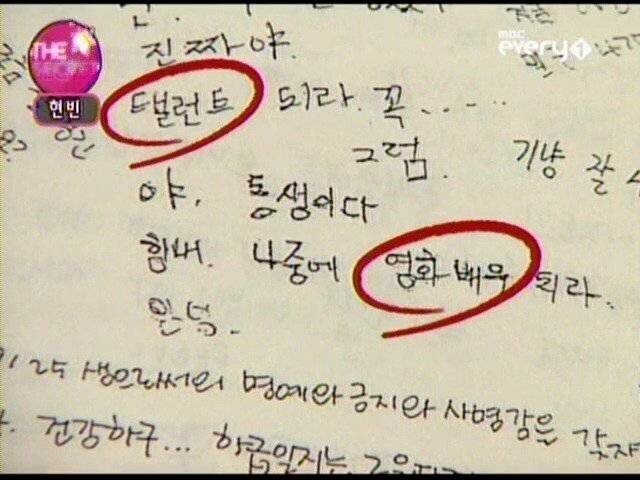 THE SECRET
현빈
mbc every1
진짜야.
탤런트 되라. 꼭.....
그럼. 기냥 잘
야. 동생이다
힘내. 나중에 영화배우 되라.
생으로서의 명예와 긍지와 사명감을 갖자
건강하구... 학급일지는